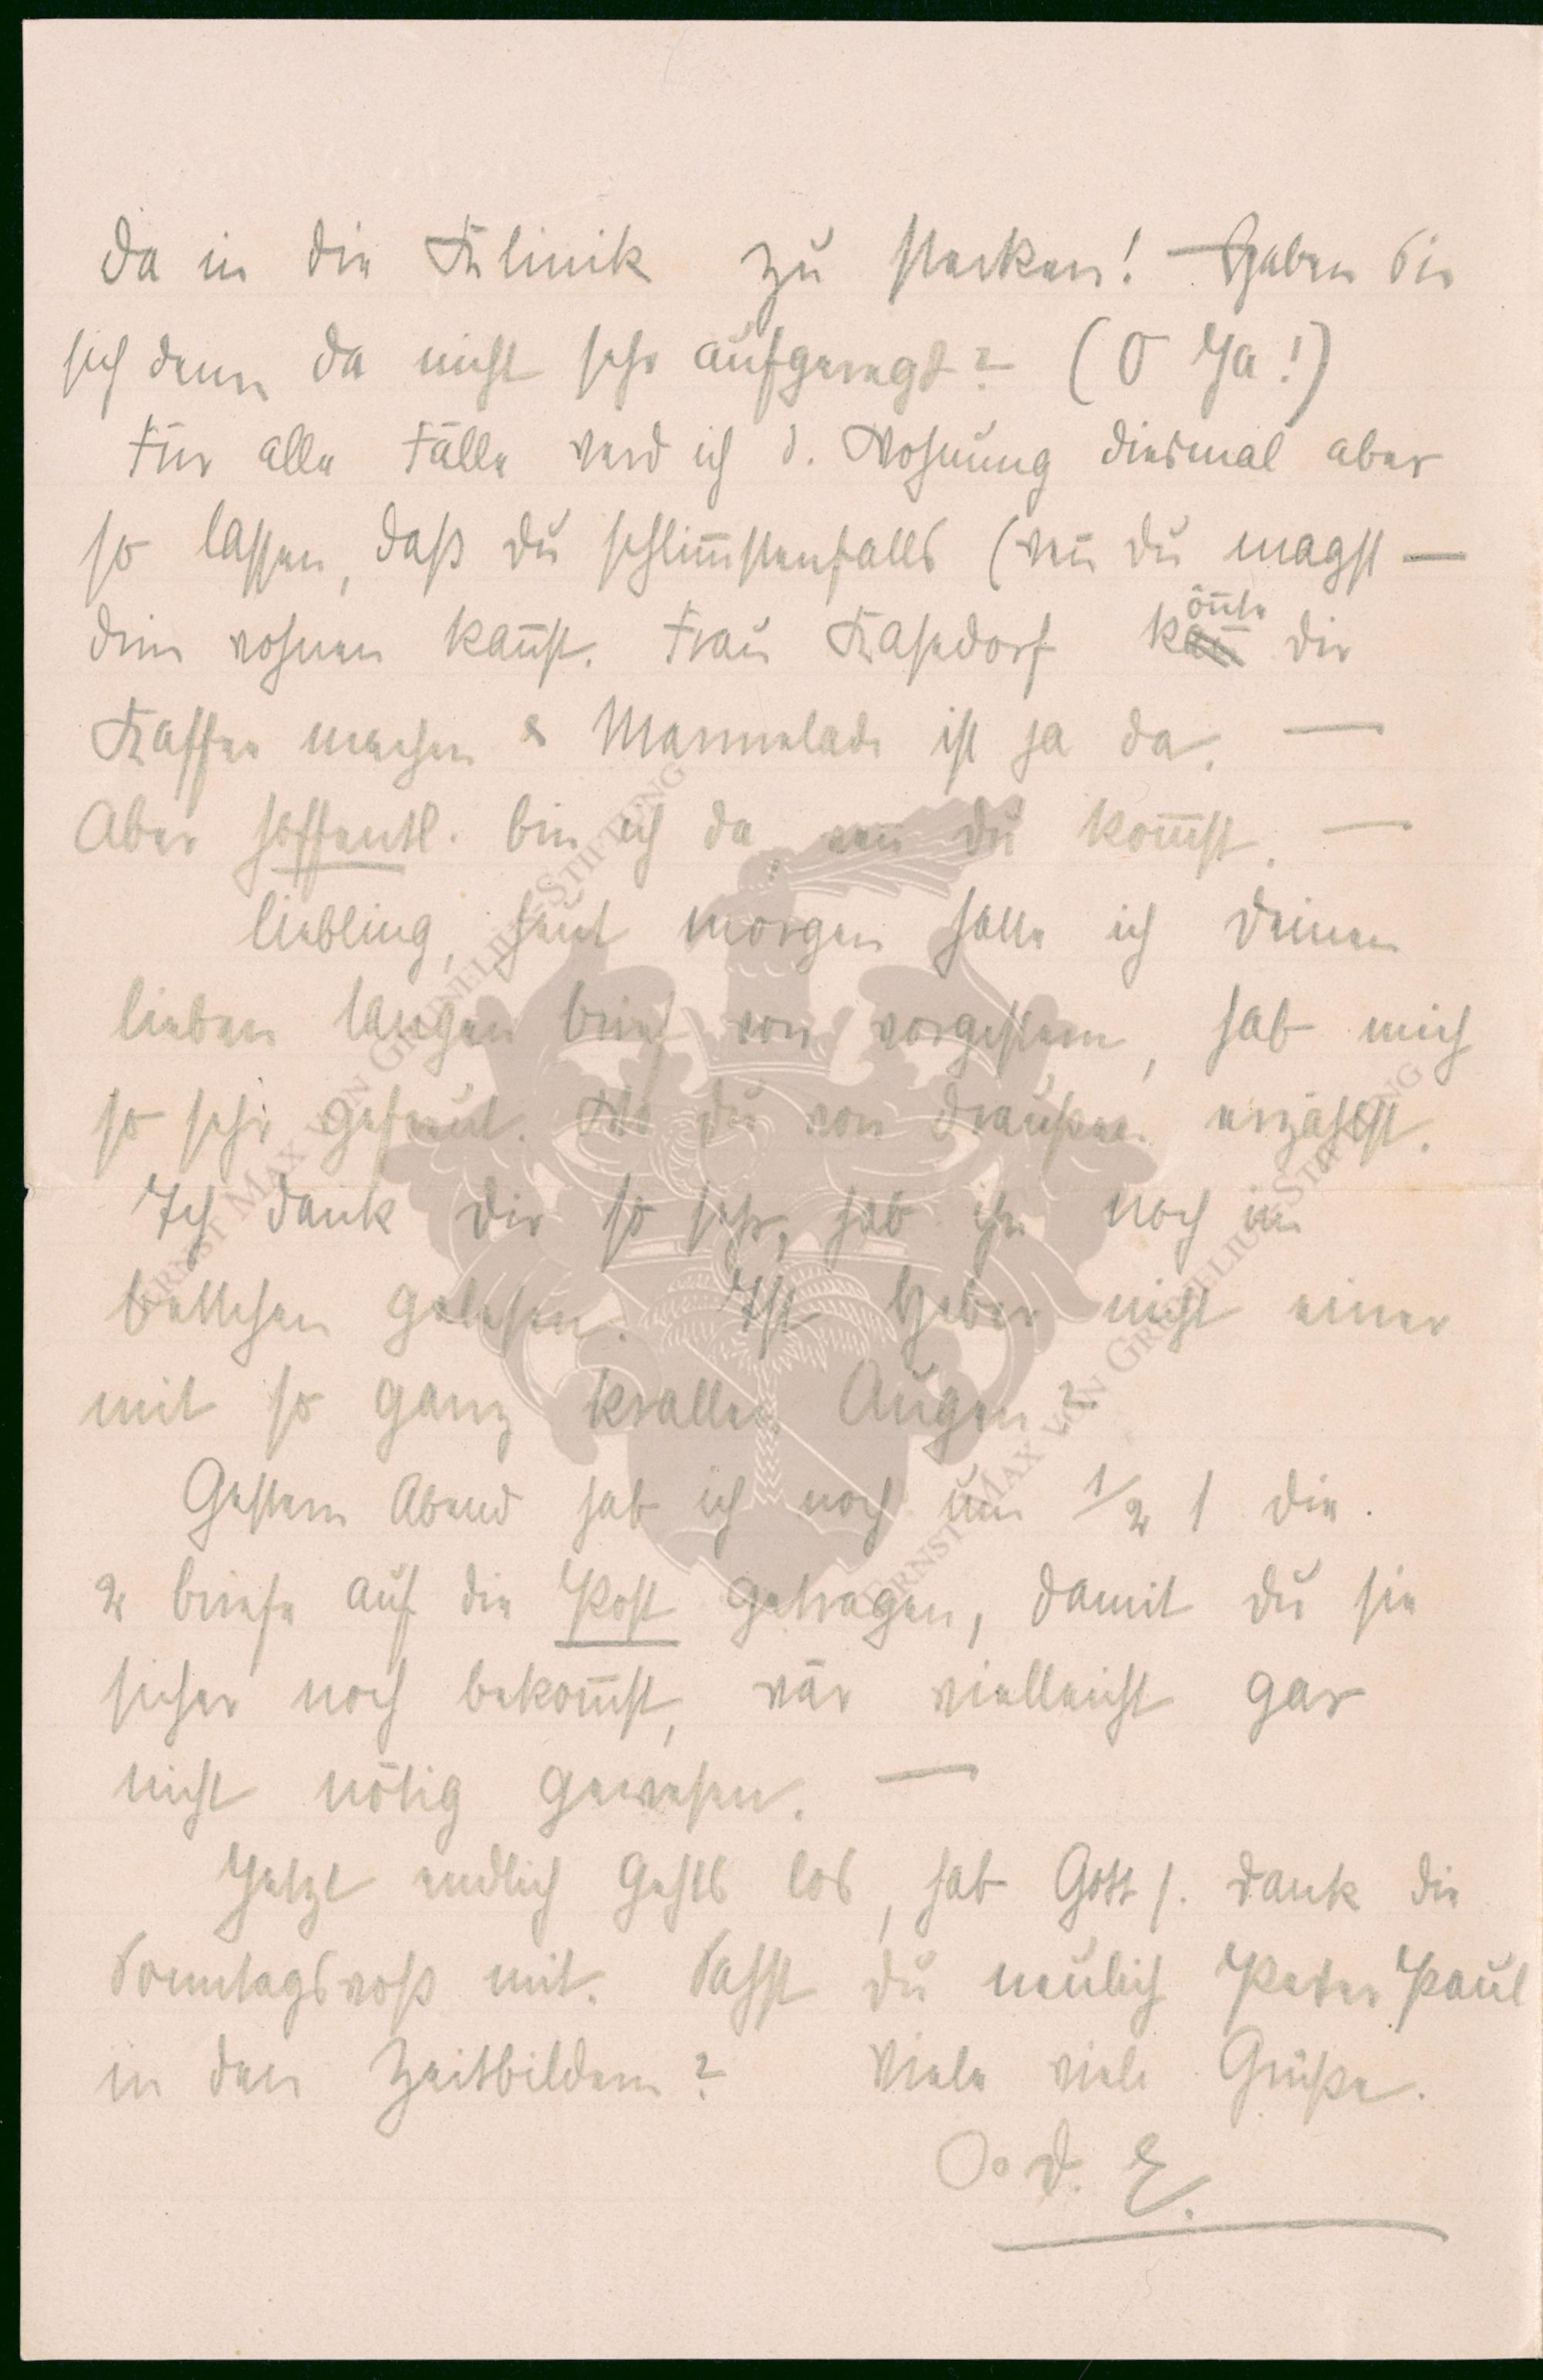 da in die Klinik zu stecken! Haben Sie
sich denn da nicht sehr aufgeregt? (O Ja!)
Für alle Fälle werd ich d. Wohnung diesmal aber
so lassen, daß du schlim̄stenfalls (wen̄ du magst —
drin wohnen kan̄st. Frau Kasedorf kön̄te dir
Kaffee machen & Marmelade ist ja da. —
Aber hoffentl. bin ich da, wen̄ du kom̄st. —
Liebling, heut morgen hatte ich deinen
lieben langen Brief von vorgestern, hab mich
so sehr gefreut. Wo du von draußen erzählst.
Ich dank dir so sehr, hab ihn noch im
Bettchen gelesen. Ist Heber nicht einer
mit so ganz krallen Augen?
Gestern Abend hab ich noch um 1/2 1 die
2 Briefe auf die Post getragen, damit du sie
sicher noch bekom̄st, wär vielleicht gar
nicht nötig gewesen. —
Jetzt endlich gehts los, hab Gott s. dank die
Sonntagsvoß mit. Sahst du neulich Peter Paul
in den Zeitbildern? Viele viele Grüße.
d. E.
ERNST MAX VON GRUNELIUS-STIFTUNG
ERNST MAX VON GRUNELIUS-STIFTUNG